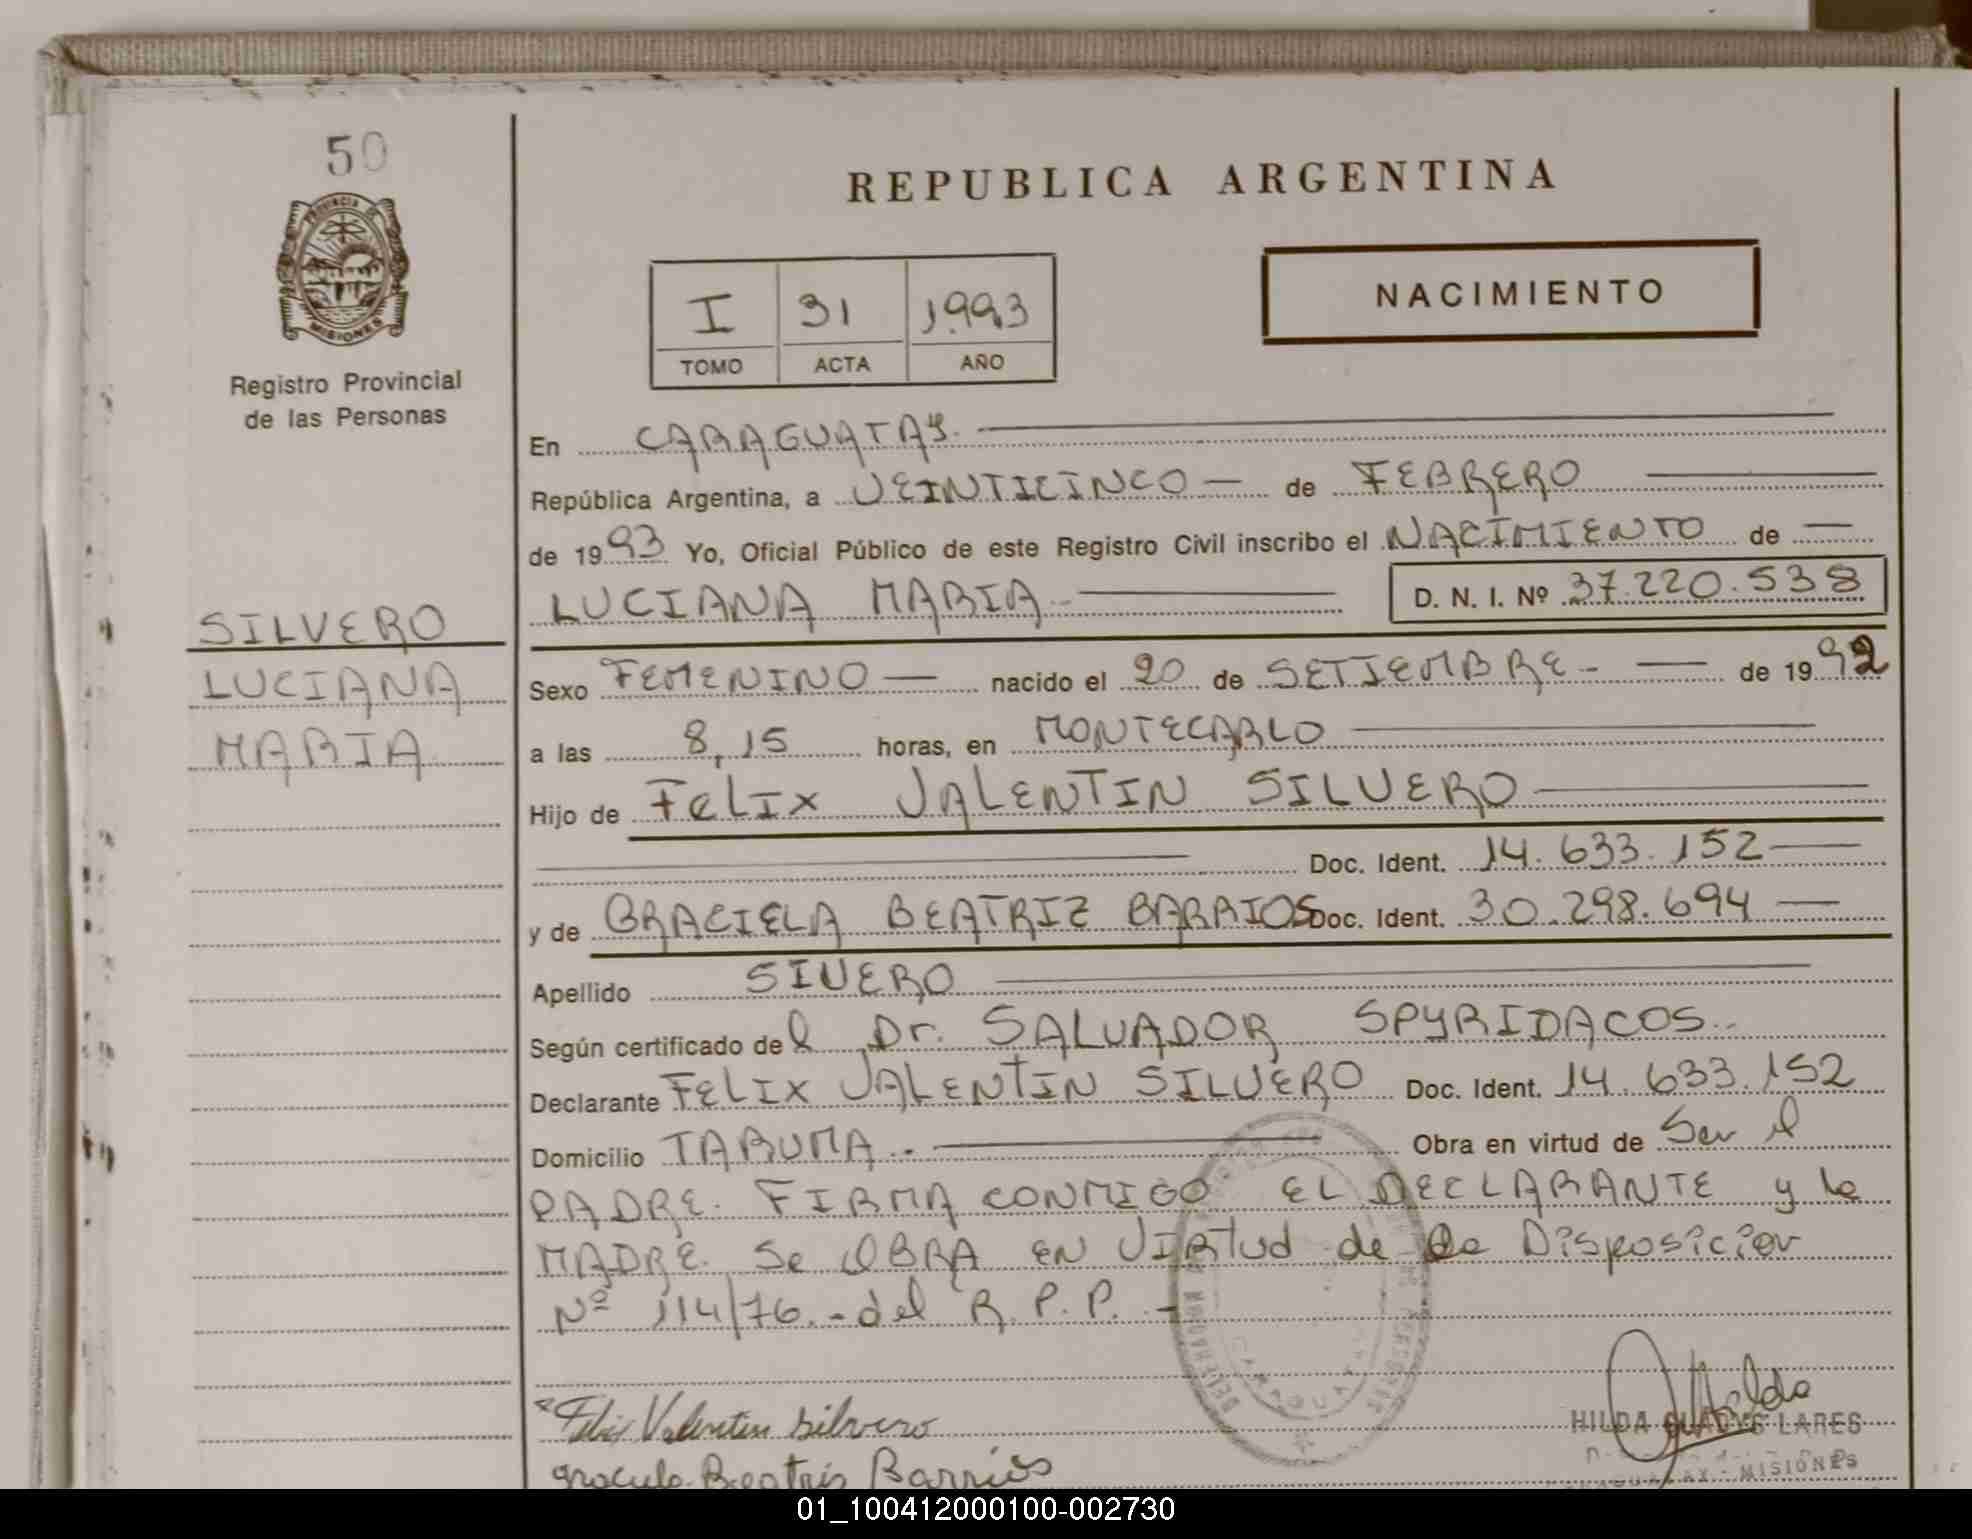 50
PROVINCIA DE
MISIONES
Registro Provincial
de las Personas
SILVERO
LUCIANA
MARIA
REPUBLICA ARGENTINA
I 31 1993
TOMO ACTA AÑO
NACIMIENTO
En CARAGUATAY.
República Argentina, a VEINTICINCO — de FEBRERO
de 1993 Yo, Oficial Público de este Registro Civil inscribo el NACIMIENTO de —
LUCIANA MARIA.- D. N. I. Nº 37.220.538
Sexo FEMENINO — nacido el 20 de SETIEMBRE - — de 1992
a las 8,15 horas, en MONTECARLO
Hijo de FELIX VALENTIN SILVERO
Doc. Ident. 14.633.152 —
y de GRACIELA BEATRIZ BARRIOS Doc. Ident. 30.298.694 —
Apellido SIVERO
Según certificado del Dr. SALVADOR SPYRIDACOS..
Declarante FELIX VALENTIN SILVERO Doc. Ident. 14.633.152
Domicilio TARUMA.. Obra en virtud de Ser el
PADRE. FIRMA CONMIGO EL DECLARANTE y la
MADRE. Se OBRA EN VIRTUD de la Disposicion
Nº 114/76.-del R.P.P. -
Felix Valentin Silvero
HILDA GLADYS LARES
Beatris Barrios
MISIONES
01_100412000100-002730